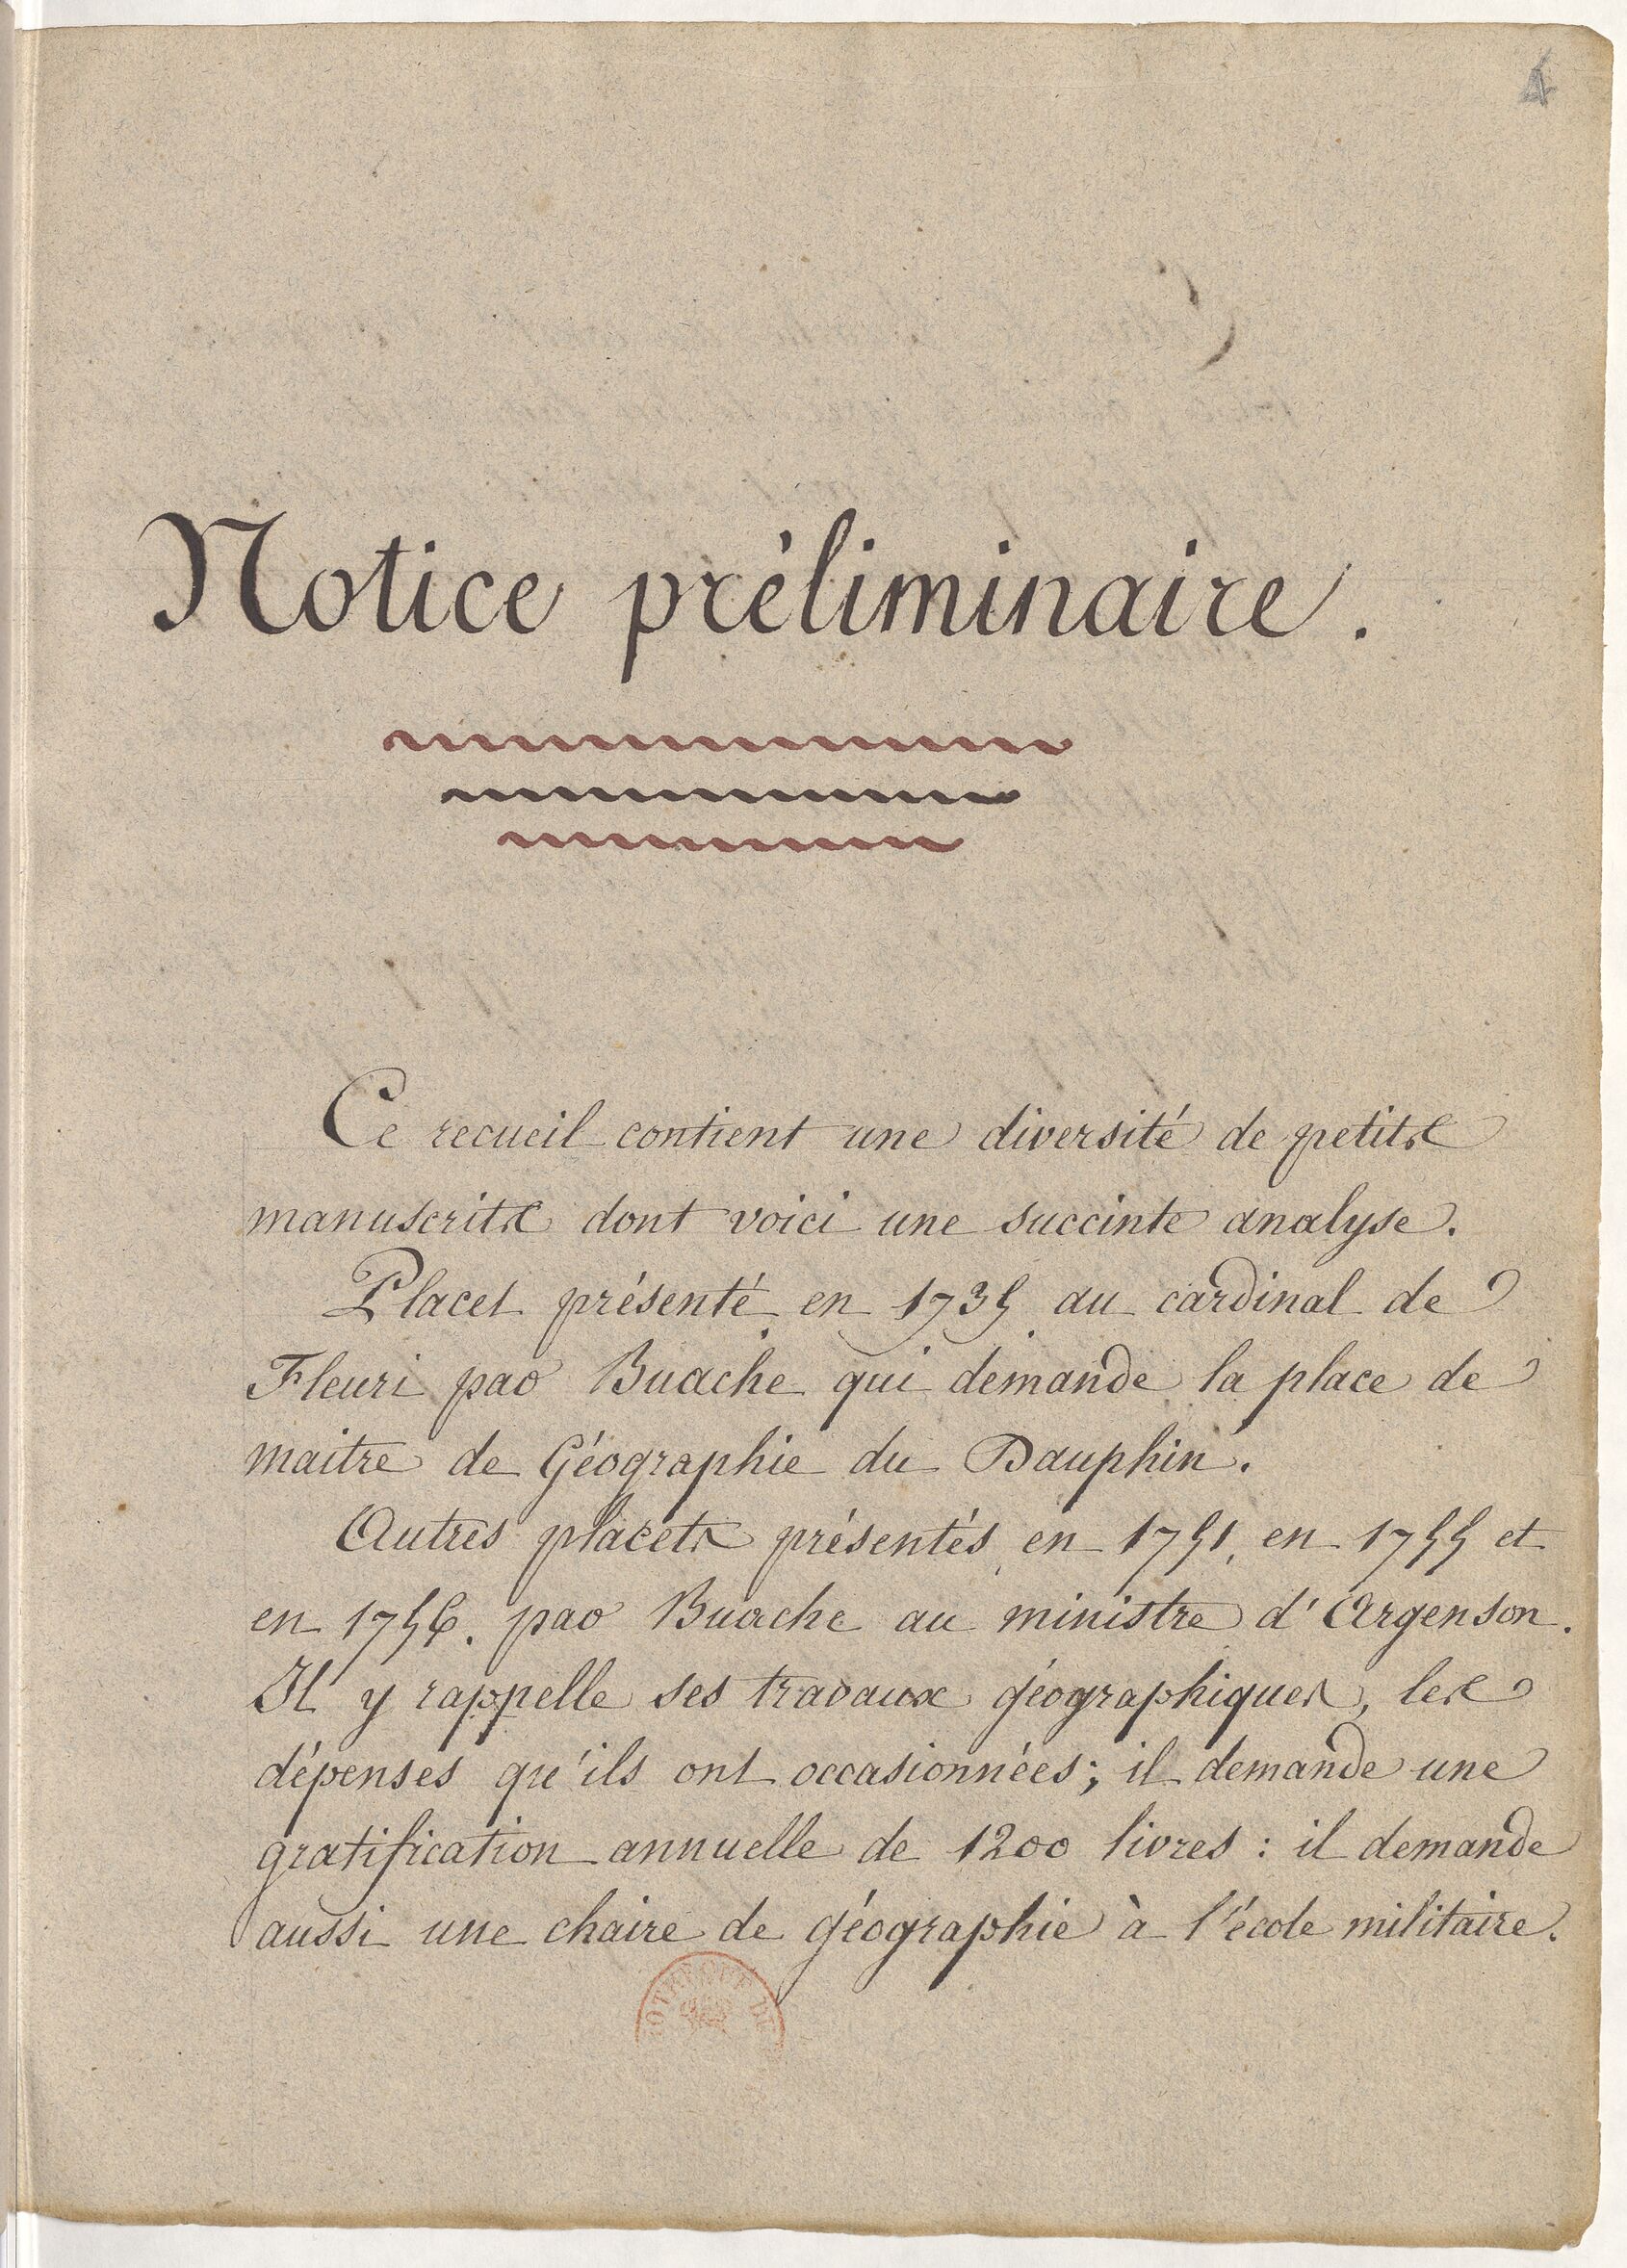 4
Notice préliminaire.
Ce recueil contient une diversité de petits
manuscrits dont voici une succinte analyse.
Placet présenté en 1735 au cardinal de
Fleuri par Buache qui demande la place de
maitre de Géographie du Dauphin.
Autres placets présentés en 1751, en 1755 et
en 1756. par Buache au ministre d'Argenson.
Il y rappelle ses travaux géographiques, les
dépenses qu'ils ont occasionnées; il demande une
gratification annuelle de 1200 livres : il demande
aussi une chaire de géographie à l'école militaire.